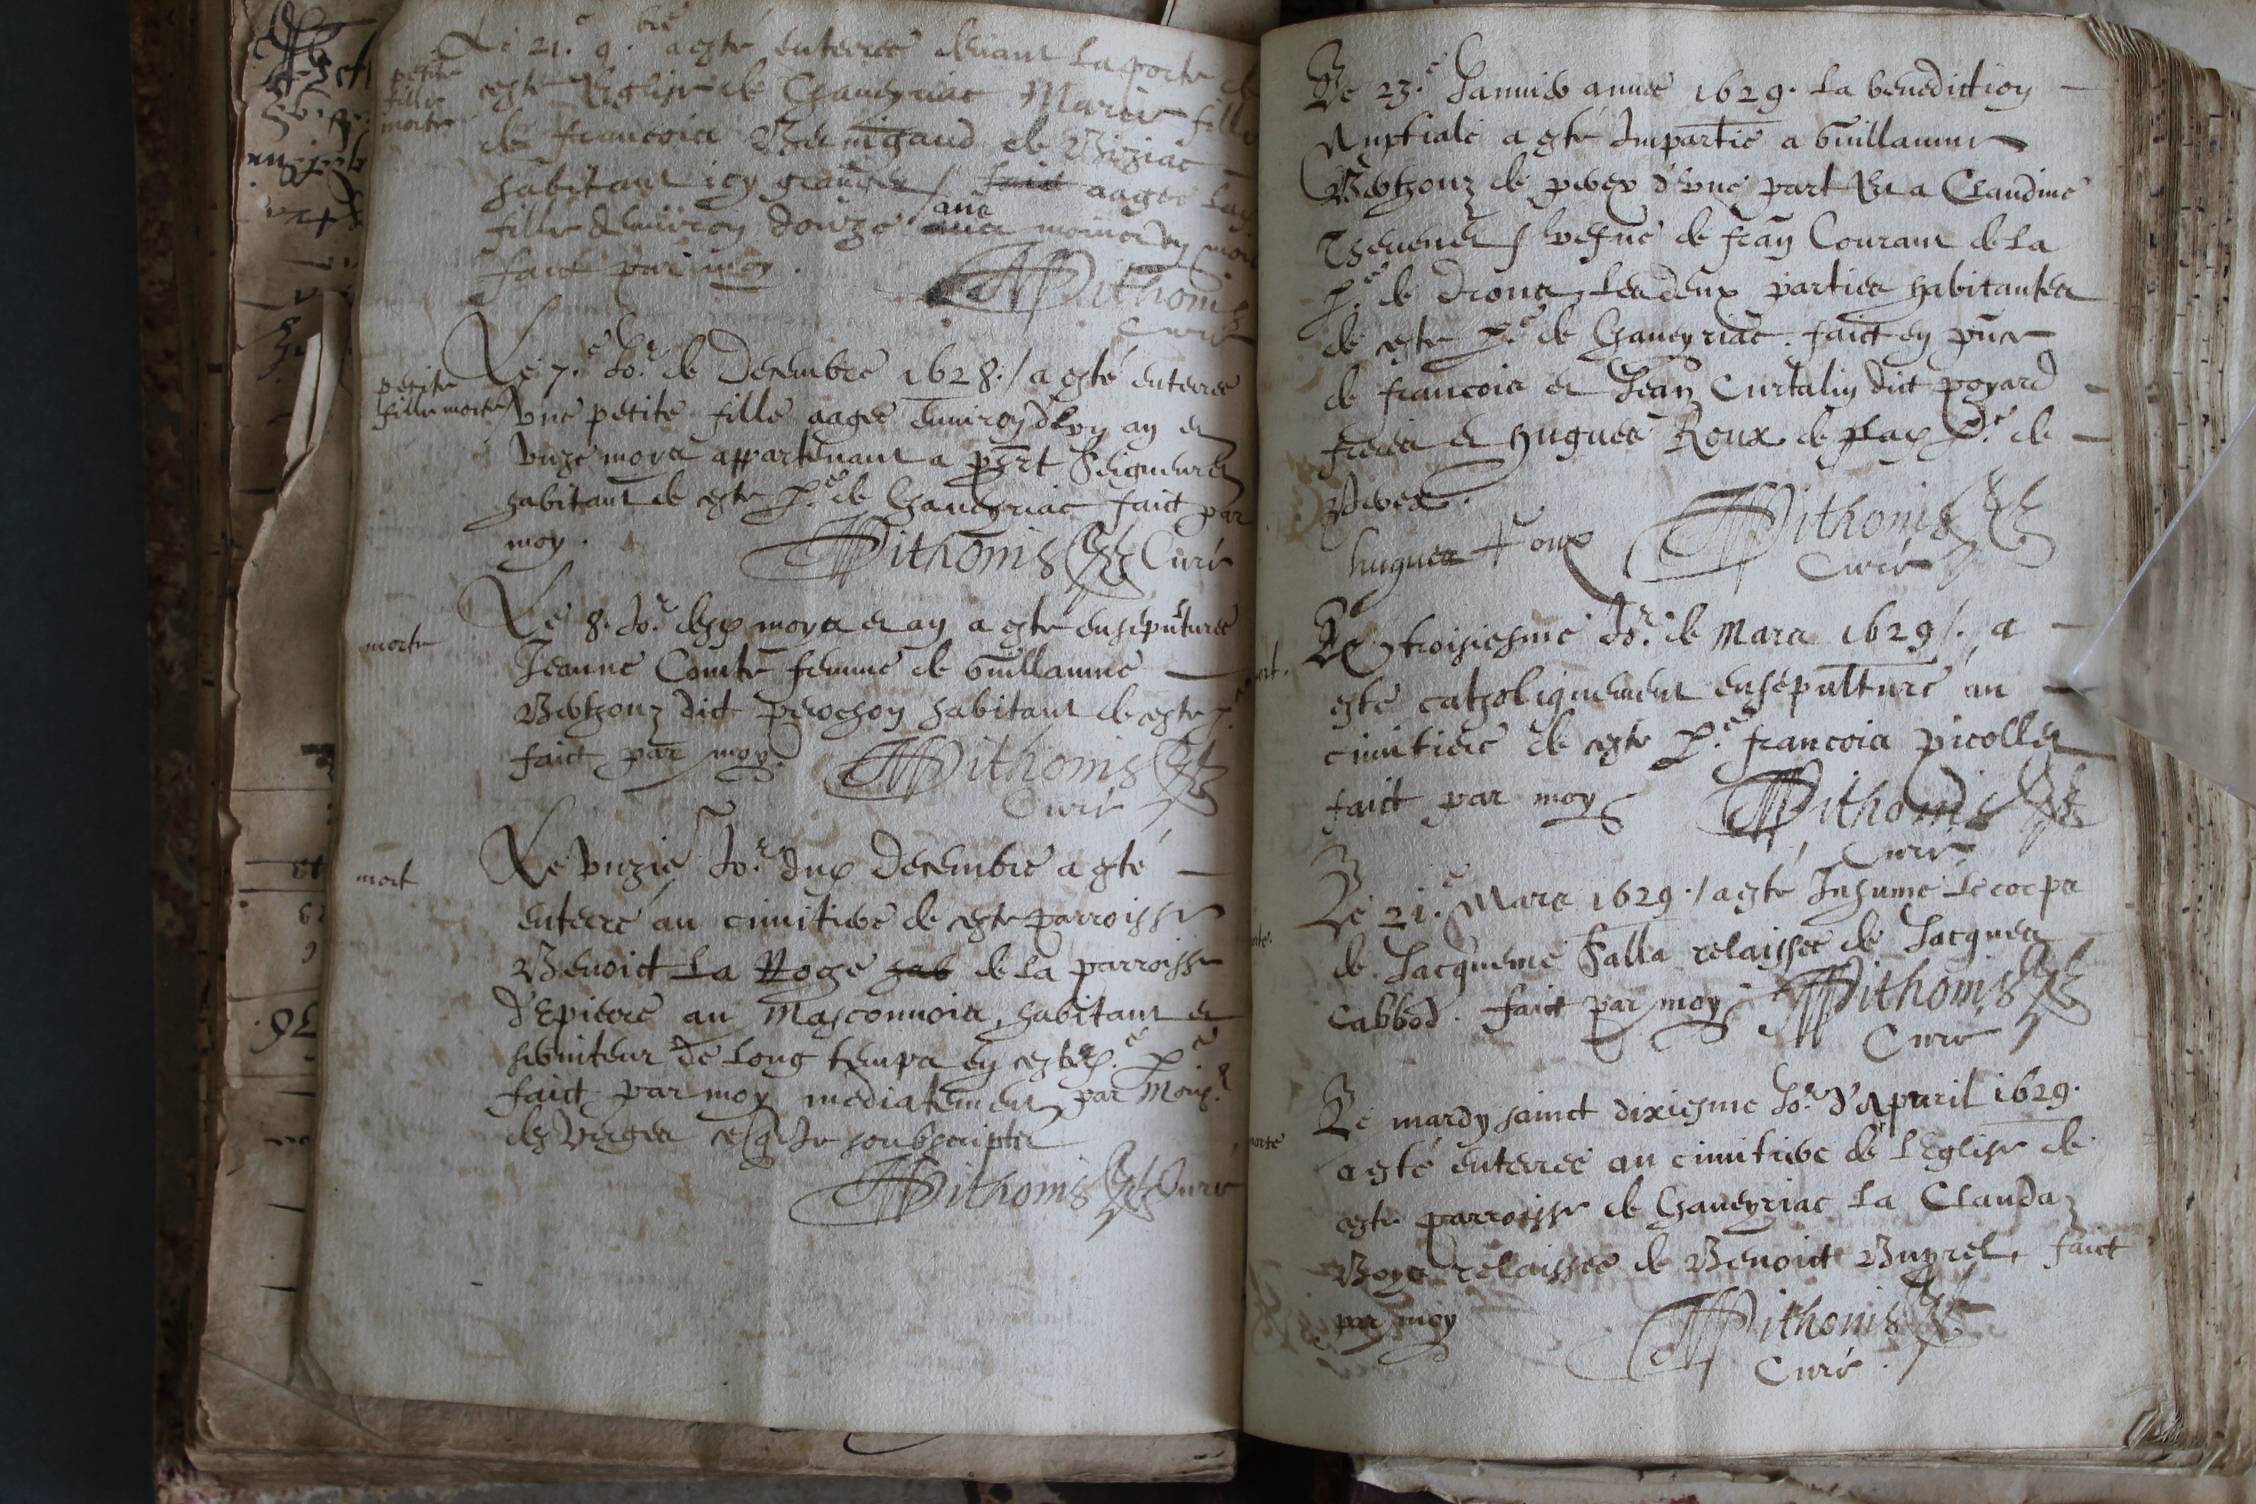 Le 21.e 9.bre a esté enterree devant la porte de
petite
fille
morte
ceste Eglise de Chaveyriac Marie fille
de francois Bernigaud de Biziac
habitant icy granger / faict aagee lad.
fille denviron douze ans
faict par moy.
Pithomis
Curé
petite
fille morte
Le 7.e Jo.r de Decembre 1628 / a esté enterree
une petite fille aagee environ d'un an et
unze moys appartenant a
habitant de ceste P.e de Chaveyriac faict par
moy. Pithomis Curé
morte
Le 8. Jo.r desd moys et an a esté ensepulturee
Jeanne Comte femme de Guillaume
Berthouz dict perochon habitant de ceste P.e
faict par moy. Pithomis
Curé
mort
Le unzie Jo.r dud Decembre a esté
enterré au cimitiere de ceste parroisse
Benoict La Roche hab de la parroisse
d'Epierre au Masconnois, habitant et
serviteur de long temps en ceste P.e
faict par moy mediatement par Mons.r
des Verges soubscripte
Pithomis Curé
Le 23.e Janvier annee 1629. la benediction
Nuptiale a esté Impartie a Guillaume
Berthouz de perex d'une part Et a Claudine
Thevenet / vefve de fran Courant de la
P.e de drons, les deux parties habitantes
de ceste P.e de Chaveyriac. faict en pñce
de francois et Jean Curtalin dict poyard
freres et Hugues Roux de plax P.e de
Perex.
hugues Roux Pithomis
Curé
mort.
Le troisiesme Jo.r de Mars 1629 /. a
esté catholiquement ensepulturé au
cimitiere de ceste P.e francois picollet
faict par moy Pithomis
Curé
Le 21.e Mars 1629. / a esté Inhumé le corps
de Jacqueme Falla relaissee de Jacques
Cabbod. faict par moy Pithomis
Curé
Le mardy sainct dixiesme Jo.r d'Apvril 1629.
morte
a esté enterree au cimitiere de l'Eglise de
ceste parroisse de Chaveyriac la Clauda
Boya relaissee de Benoict Buyret, faict
par moy Pithomis
Curé.